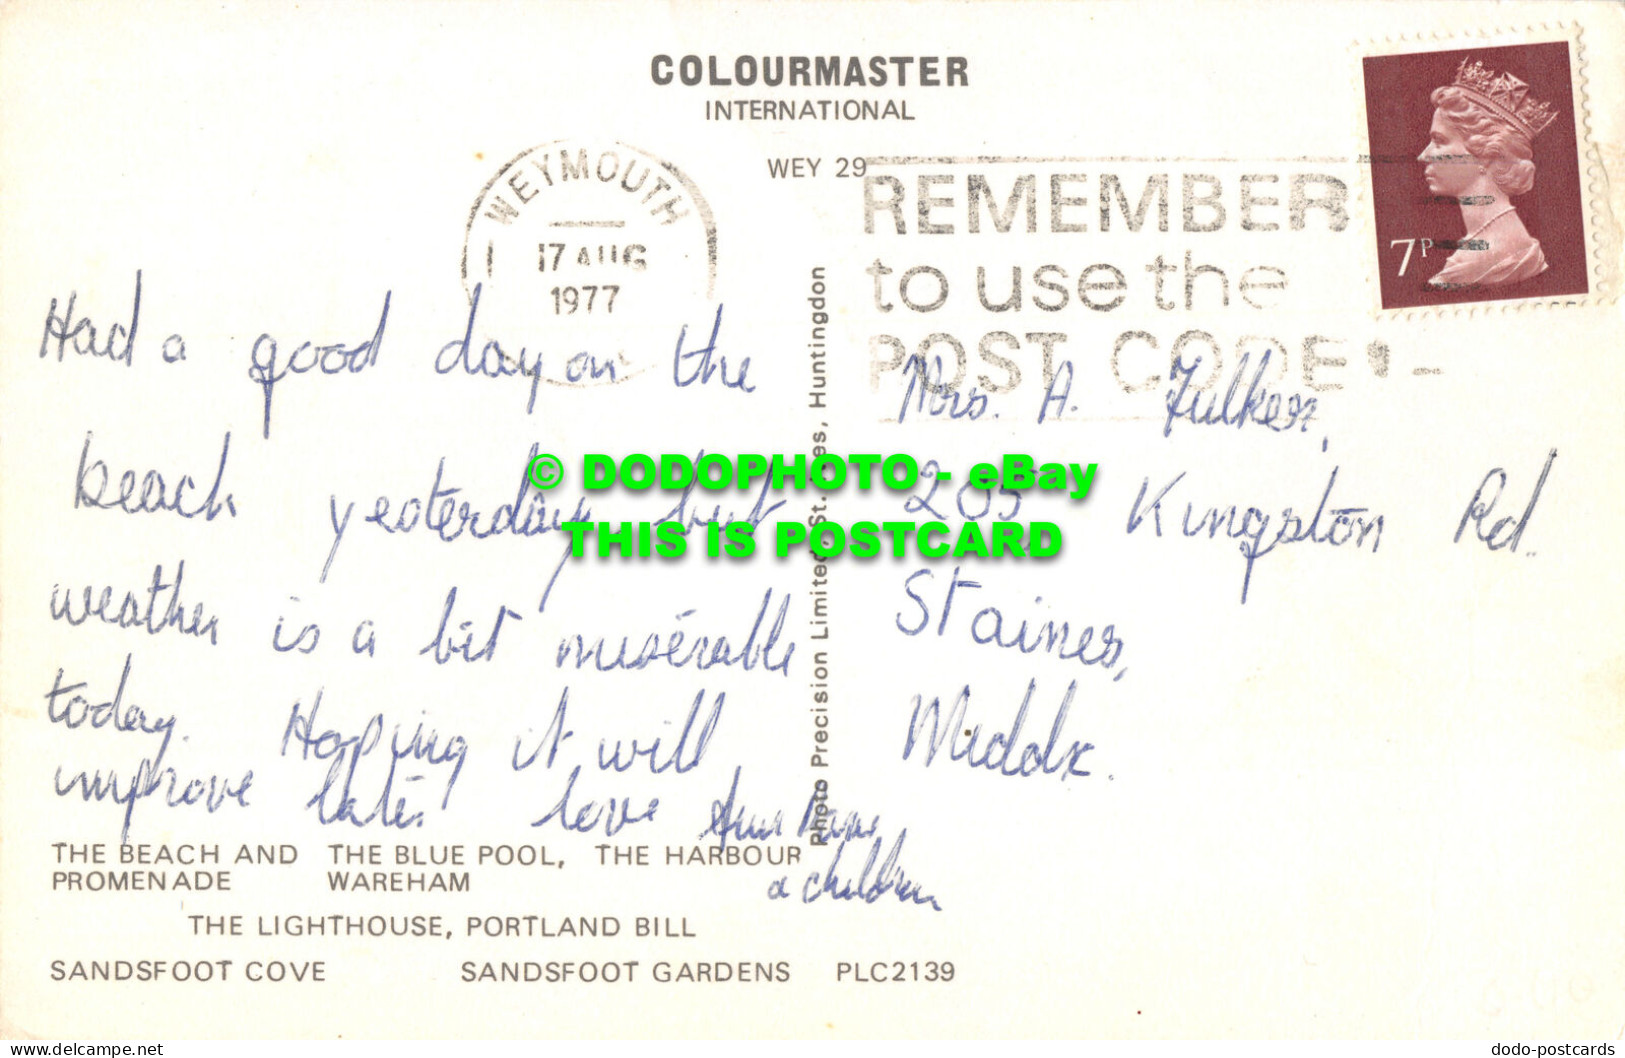 COLOURMASTER
INTERNATIONAL
WEY 29
WEYMOUTH
17 AUG
1977
REMEMBER
to use the
POST CODE
7P
Had a good day on the
beach yesterday but
weather is a bit miserable
today. Hoping it will
improve later love
& children
Mrs. A. Fulker,
205, Kingston Rd.
Staines,
Middx.
Photo Precision Limited, St. Ives, Huntingdon
© DODOPHOTO - eBay
THIS IS POSTCARD
THE BEACH AND PROMENADE
THE BLUE POOL, WAREHAM
THE HARBOUR
THE LIGHTHOUSE, PORTLAND BILL
SANDSFOOT COVE
SANDSFOOT GARDENS
PLC2139
delcampe.net
dodo-postcards